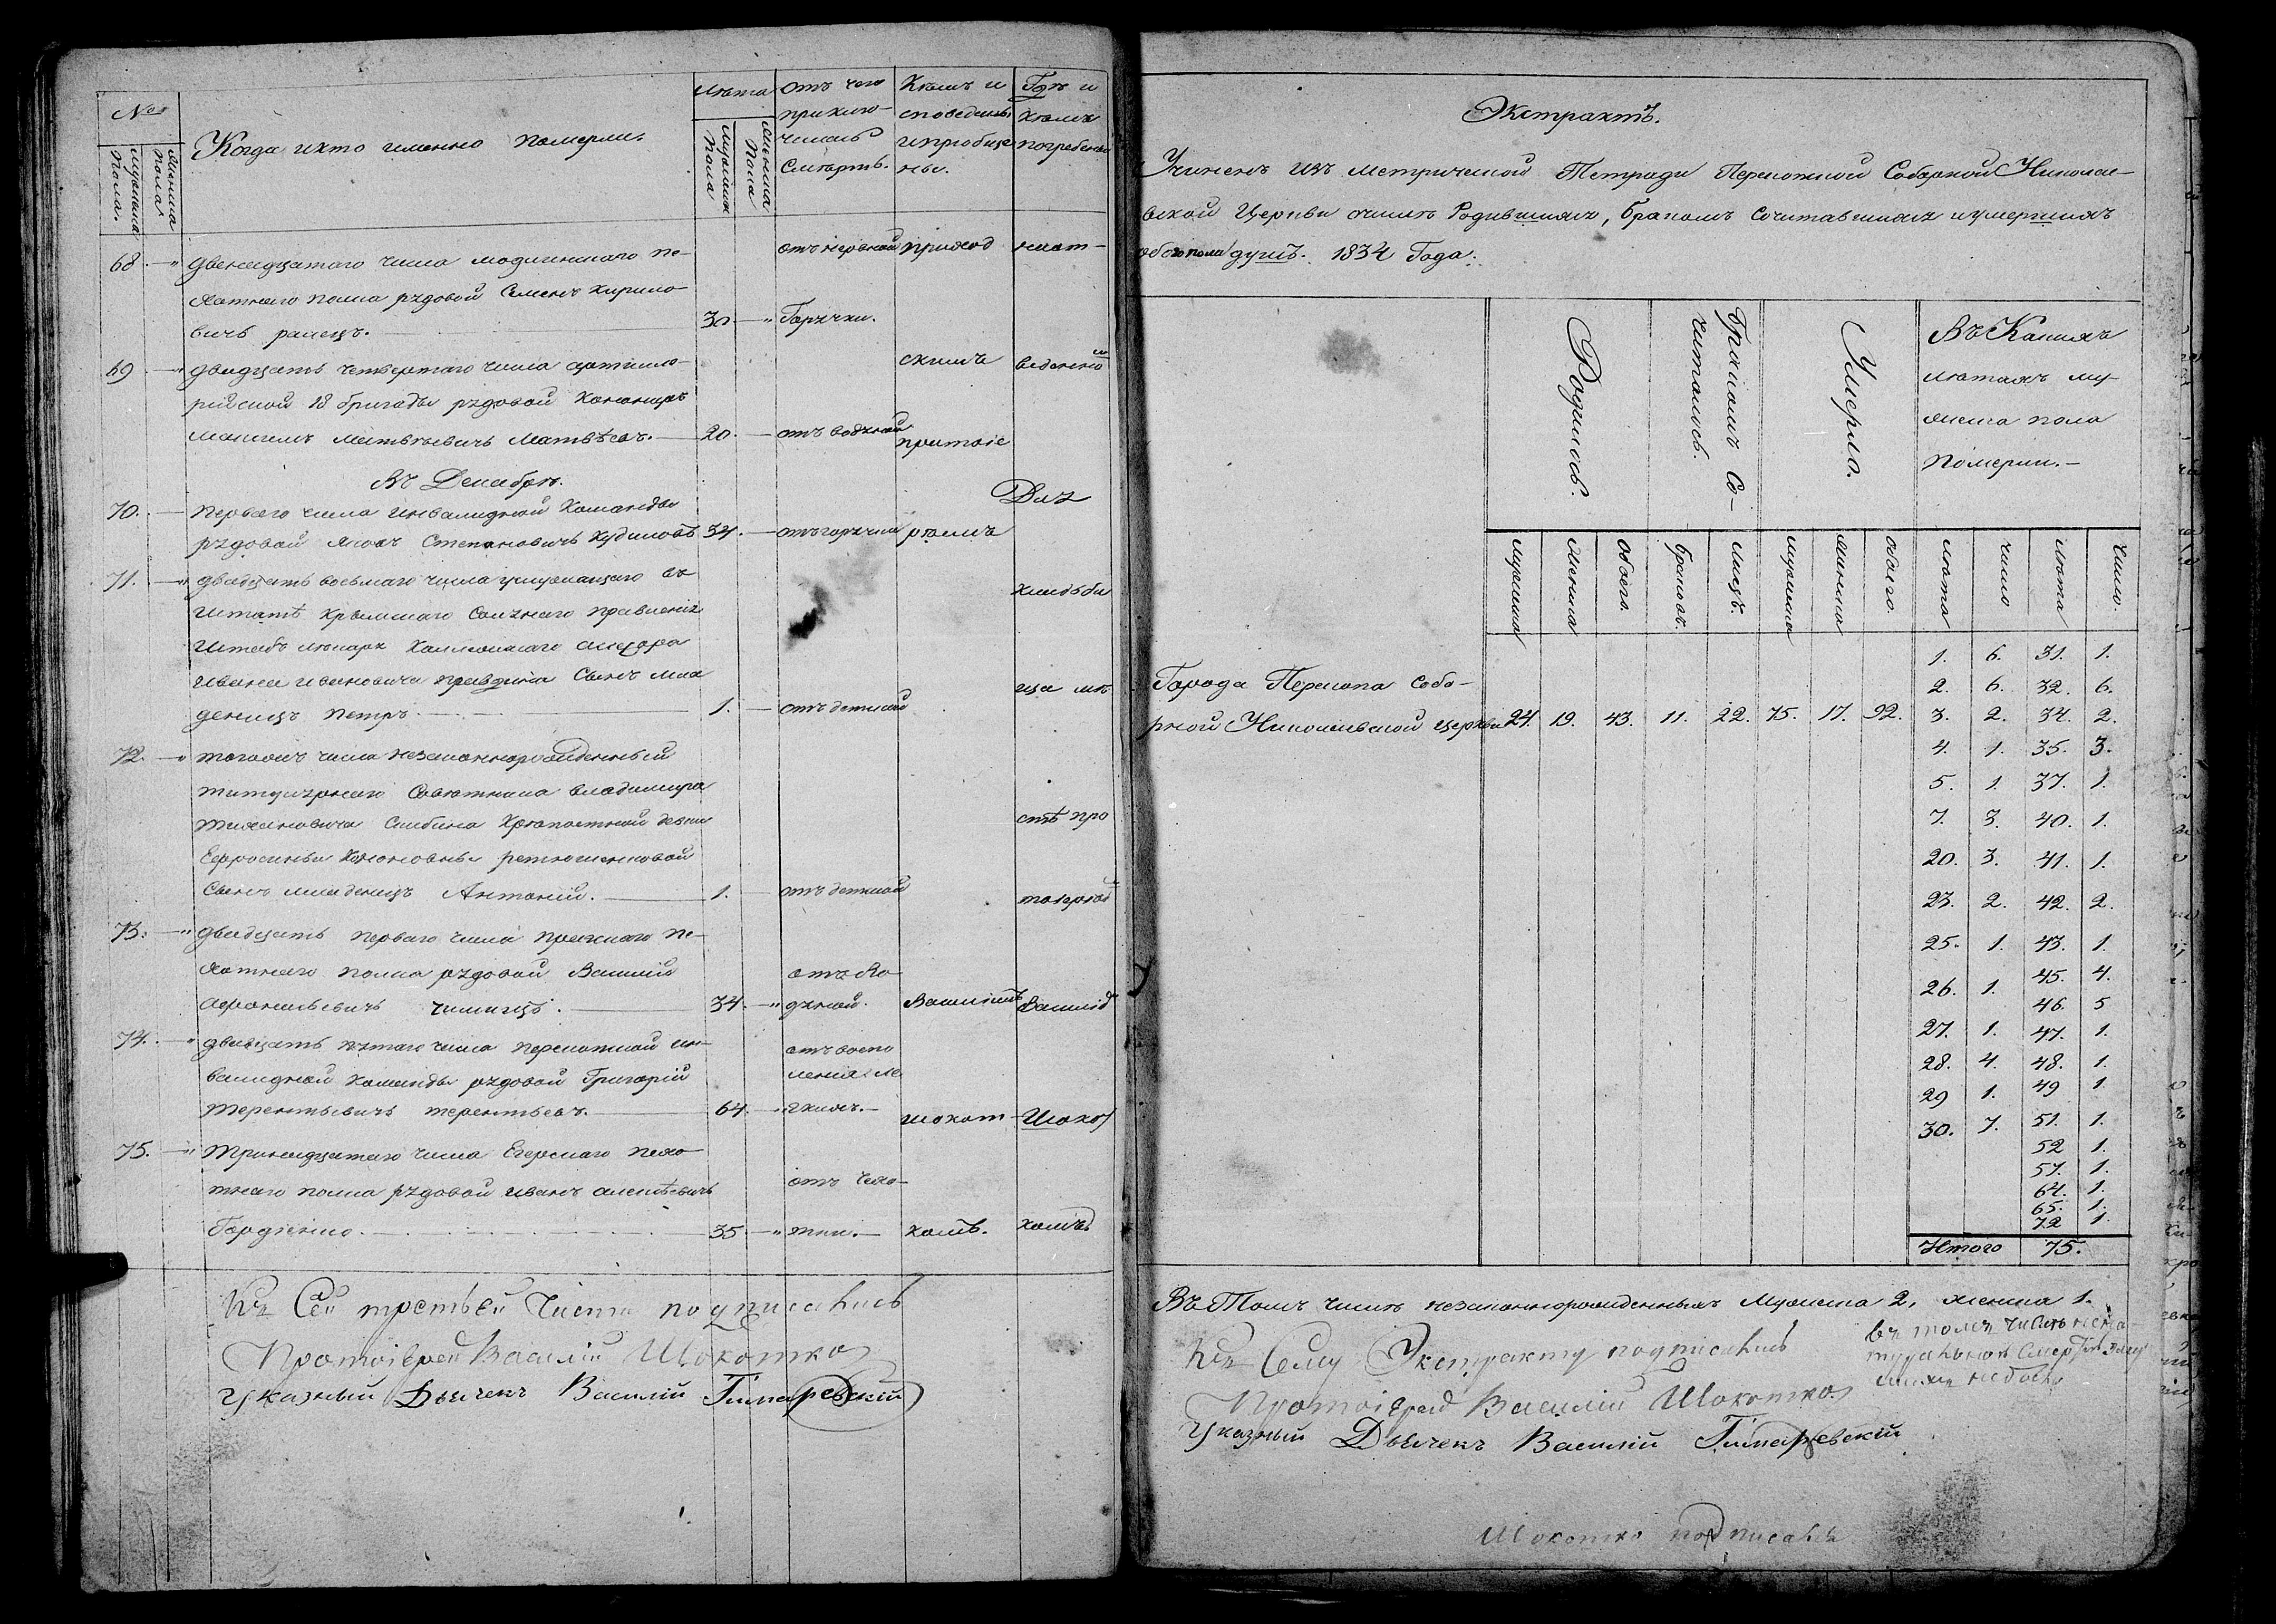 №
мужеска пола.
женска пола
Когда и кто именно померли.
Лета
мужеска пола
женска пола
Отъ чего приклю-
чилась
смерть.
Кемъ и
споведаны
и приобще
ны.
Где и
кемъ
погребены
68. двенадцатаго числа модлинскаго пе-
хотнаго полка рядовой Семенъ Кирило-
вичъ ранецъ. 30. отъ нервной Горячки.
приход
69 двадцать четвертаго числа артиле-
рійской 18 бригады рядовой
Матвѣевичь Матвѣевъ. 20. отъ водяной
скимъ
протоіе
Въ Декабрѣ.
70. перваго числа инвалидной Команды
рядовой Яковъ Степановичь Кудиновъ 34. отъ горячки реемъ
71. двадцать восьмаго числа служащаго въ
штатѣ крымскаго Солянаго правленія
штабъ лекаря Коллежскаго асесора
ивана ивановича сынъ мла
денецъ Петръ. 1. отъ детской
кладьби
ща ме
72. тогожъ числа незаконнорожденный
титулярнаго Советника владимира
крепостной девки
Сынъ младенецъ Антоній. 1. отъ детской
стѣ про
тоіерей
73. двадцать перваго числа пе-
хотнаго полка рядовой Василій
34. отъ Во-
дяной. Василіемъ Василій
74. двадцать пятаго числа перекопской ин-
валидной команды рядовой Григорій
терентьевичь терентьевъ. 64. отъ воспа
ления ле
гкихъ. шокот Шокот
75. Тринадцатаго числа Егерскаго пехо-
тнаго полка рядовой иванъ алексѣевичь
Гордіенко. 35 отъ Чехо-
тки. комъ. комъ
Къ Сей третьей Части подписались
Протоіерей Василій Шокотко
Указный Дьячекъ Василій
Экстрактъ.
Учиненъ изъ метрической Тетради Перекопской Соборной Николае-
вской Церкви о числе Родившихся, бракомъ сочитавшихся и умершихъ
обоего пола душъ. 1834 Года.
Родилось.
Бракомъ Со-
читалось.
Умерло.
Въ Какихъ
летахъ му-
жеска пола
Померли.
мужеска
женска
обоего.
браковъ.
лицъ.
мужеска
женска
обоего.
лета
число
лета
число.
Города Перекопа собо-
рной Николаевской церкви 24. 19. 43. 11. 22. 75. 17. 92.
1. 6. 31. 1.
2. 6. 32. 6.
3. 2. 34. 2.
4. 1. 35. 3.
5. 1. 37. 1.
7. 3. 40. 1.
20. 3. 41. 1.
23. 2. 42. 2.
25. 1. 43. 1.
26. 1. 45. 4.
46. 5
27. 1. 47. 1.
28. 4. 48. 1.
29 1. 49 1.
30. 7. 51. 1.
52 1.
57. 1.
64. 1.
65. 1.
72 1.
Итого 75.
Въ Томъ числе незаконнорожденныхъ Мужеска 2, женска 1.
въ томъ числе
Къ Сему Экстракту подписались
Протоіерей Василій Шокотко
Указный Дьячекъ Василій
Шокотко подписалъ